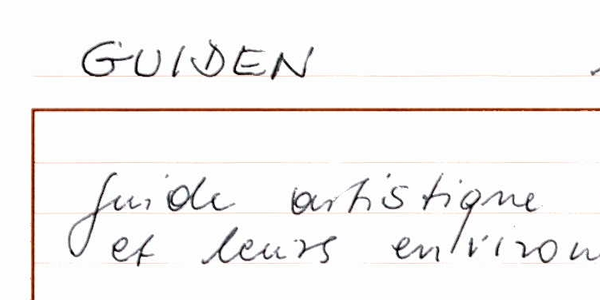 GUIDEN
Guide artistique
et leurs environ